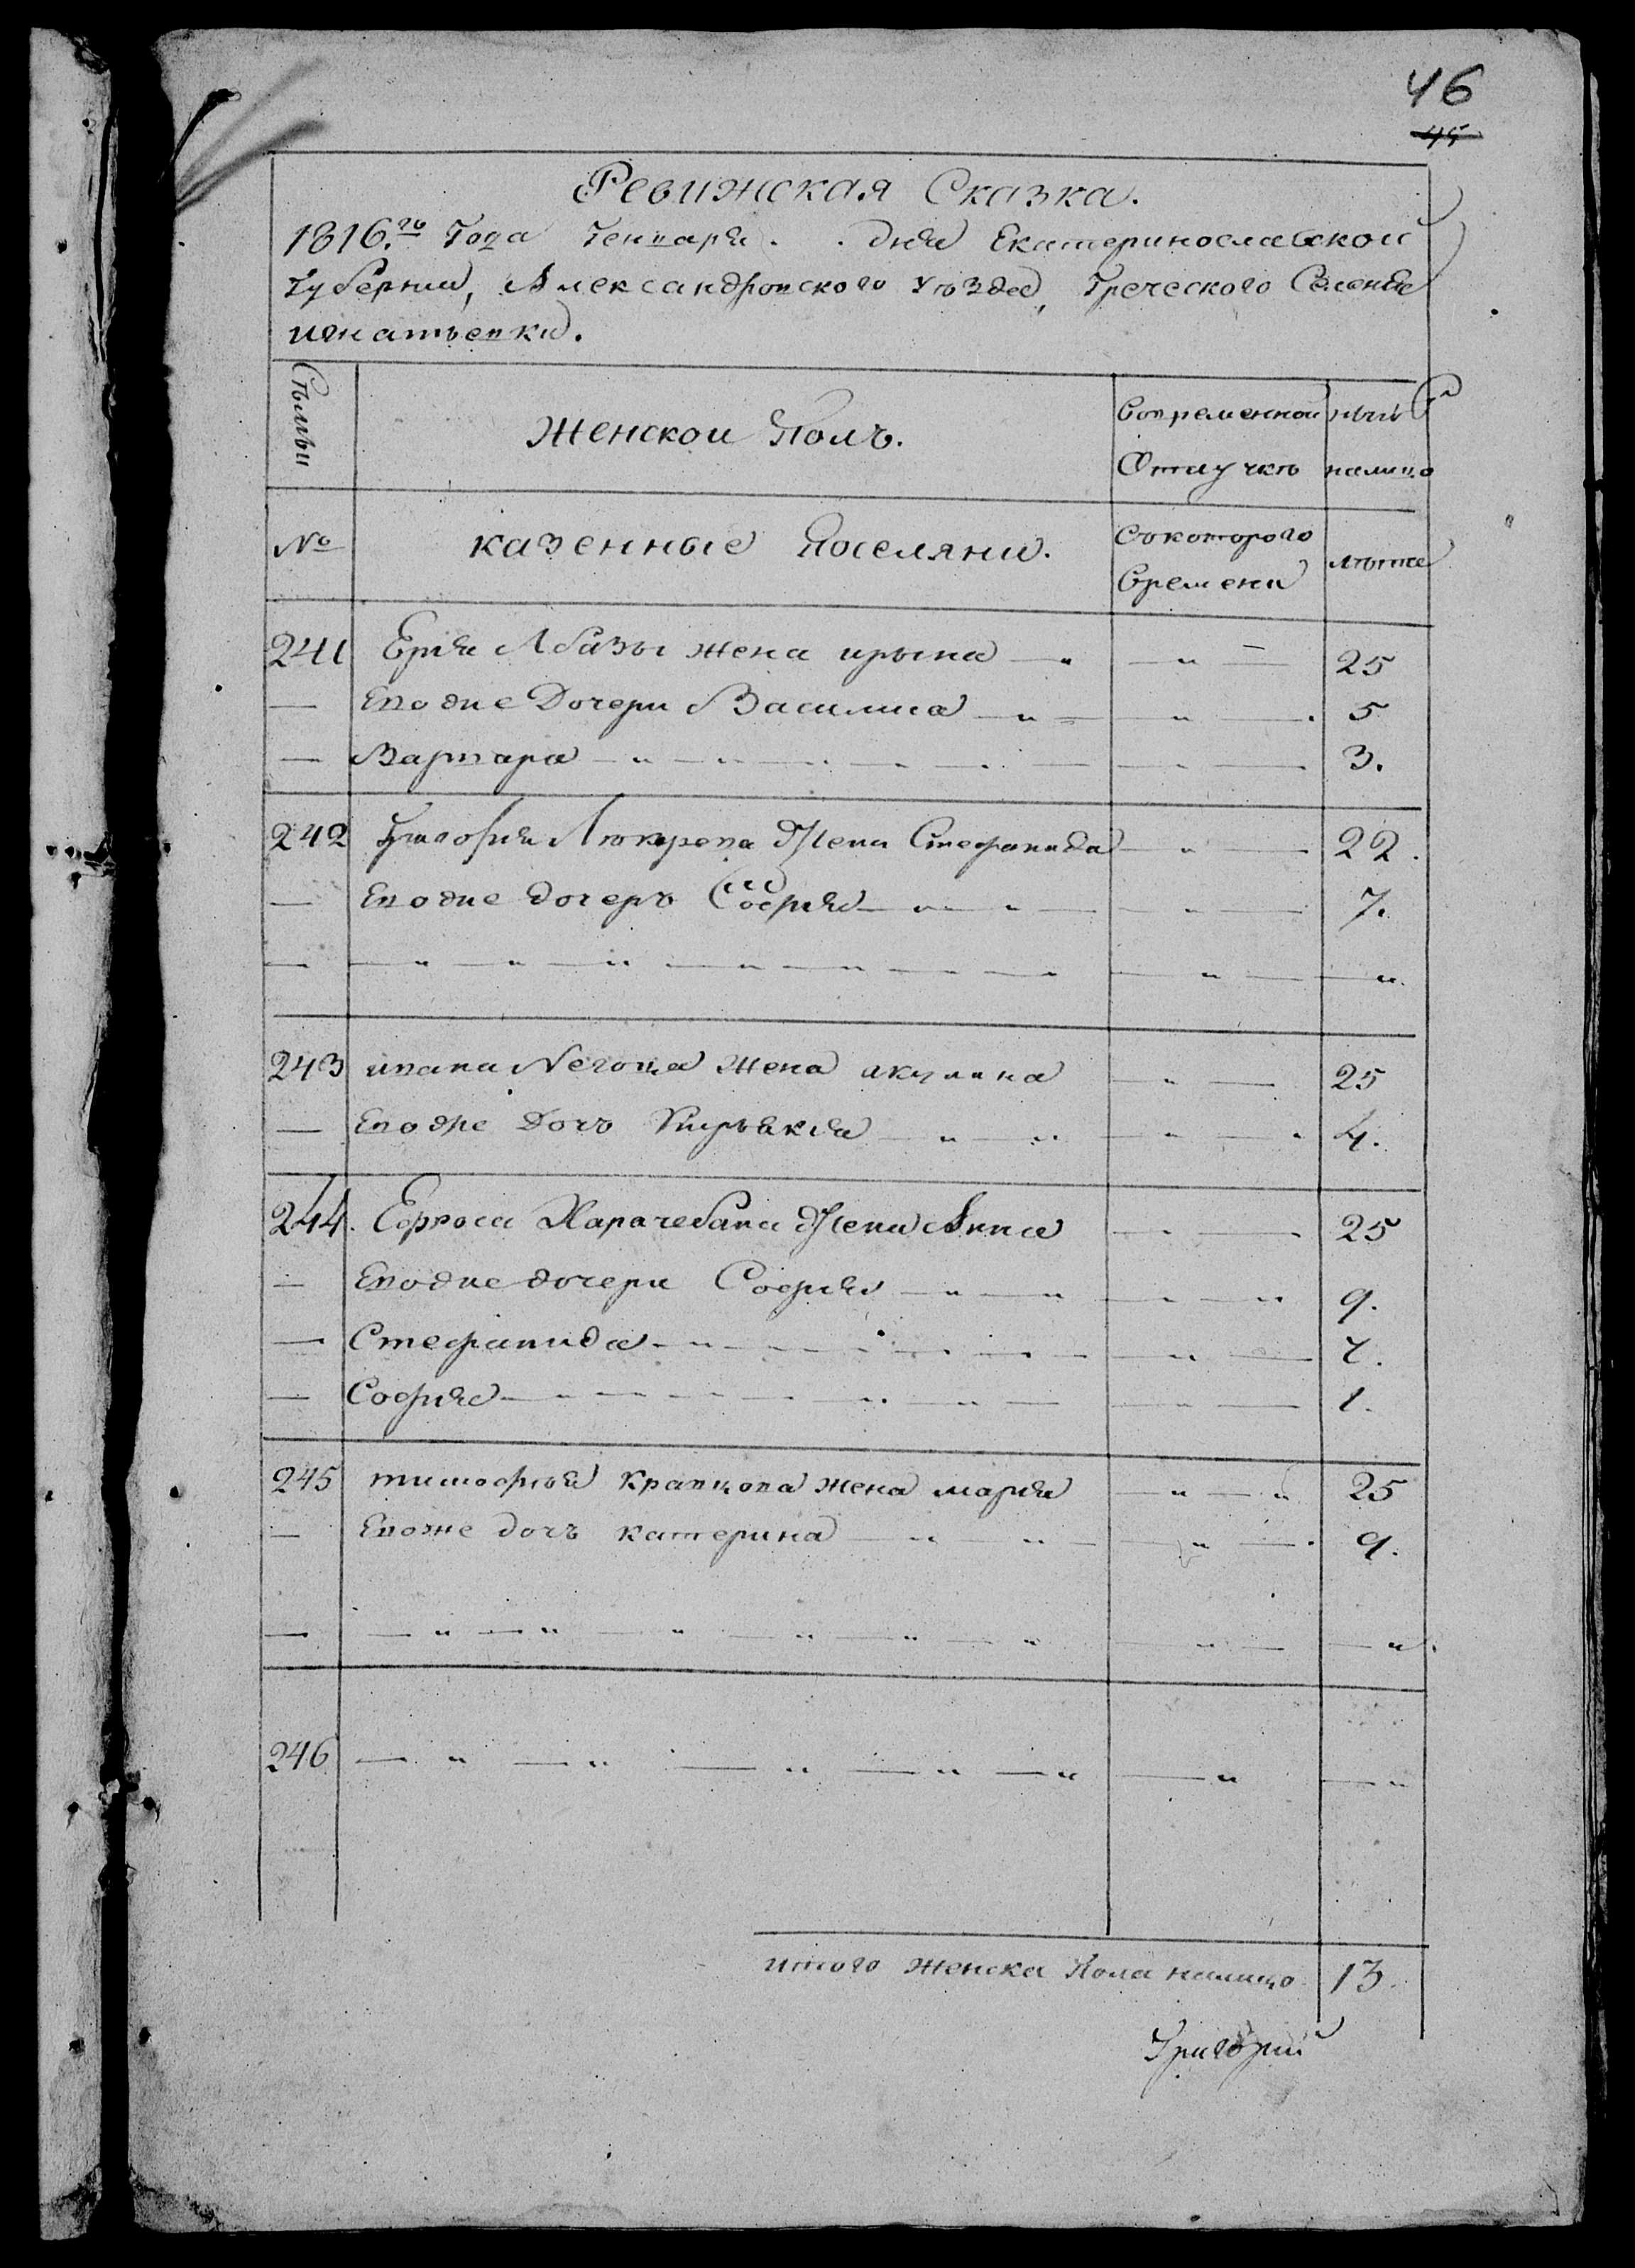 46
45
Ревижская Сказка.
1816.го Года Генваря . . дня Екатеринославской
Губернии, Александровского уѣзда, Греческого Селенія
игнатьевки.
Семьи
Женской Полъ.
Вовременной
Отлучкѣ
нынѣ
налицо
№
казенные Поселяни.
Съкоторого
Времени
лѣта
241 Ерія Абазы жена ирына — " — " — 25
— Еводне Дочери Василиса — " — " — . 5
— Варвара — " — " — 3.
242 Григорія жена Стефанида — " — 22.
— Еводне дочеръ Софія — " — " — 7.
— — " — " — " — " — "
243 ивана жена акулина — " — 25
— Еводже Дочъ Кирьякія — " — " — 4.
244. Ефроса Харачебана жена Анна — " — 25
— Еводне дочери Софія — " — " — 9.
— Стефанида — " — " — 7.
— Софія — " — " — 1.
245 тимофѣя кравцова жена марія — " — " 25
— Евоже дочъ катерина — " — " — . 9.
— — " — " — " — " — " — ".
246 — " — " — " — " — " — " — "
итого женска Пола налицо 13.
Григорий